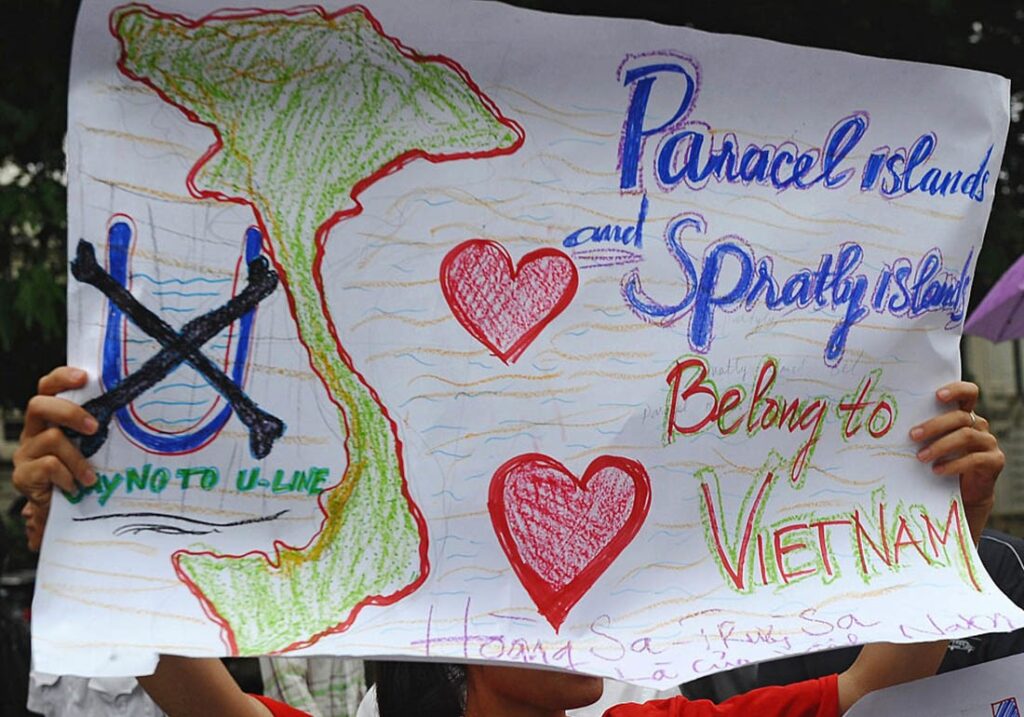 Paracel islands
and
Spratly islands
Belong to
VIETNAM
SAY NO TO U-LINE
Hoàng Sa - Trường Sa
Là của Việt Nam